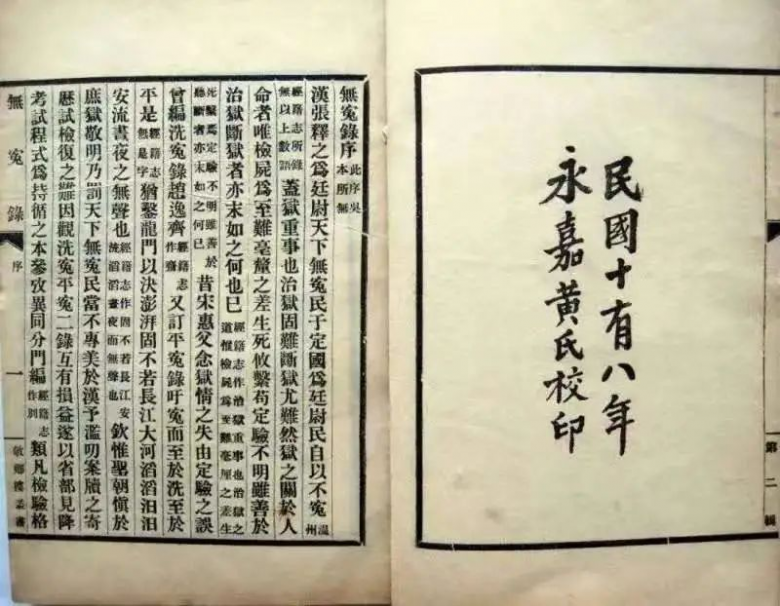 民國十有八年
永嘉黃氏校印
第二輯
無冤錄序此序吳本所無
漢張釋之爲廷尉天下無冤民于定國爲廷尉民自以不冤溫州
經籍志所錄無以上數語蓋獄重事也治獄固難斷獄尤難然獄之關於人
命者唯檢屍爲至難毫釐之差生死攸繫苟定驗不明雖善於
治獄斷獄者亦末如之何也已經籍志作治獄重事也治獄之道恨檢屍爲至難毫厘之差生
死繫焉定驗不明雖善於聽斷者亦末如之何已昔宋惠父念獄情之失由定驗之誤
曾編洗冤錄趙逸齊經籍志作齋又訂平冤錄吁冤而至於洗至於
平是經籍志無是字猶鑿龍門以決澎湃固不若長江大河滔滔汩汩
安流晝夜之無聲也經籍志作固不若長江安流滔滔晝夜而無聲也欽惟聖朝愼於
庶獄敬明乃罰天下無冤民當不專美於漢予濫叨案牘之寄
歷試檢復之難因觀洗冤平冤二錄互有損益遂以省部見降
考試程式爲持循之本參攷異同分門編經籍志作別類凡檢驗格
無冤錄
序
一
敬鄉樓叢書